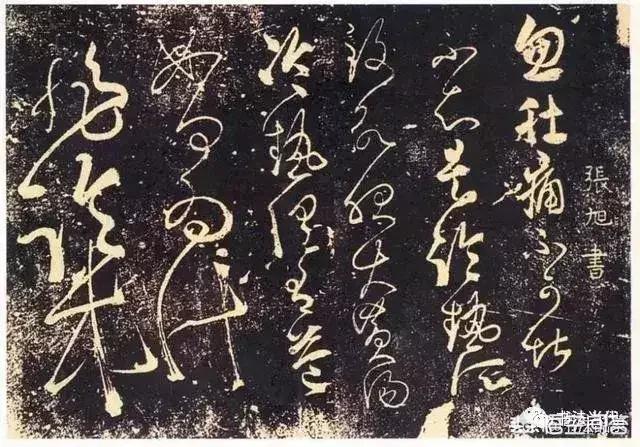 張旭書
忽肚痛不可堪
不知是冷熱所
致欲服大黄湯
冷熱俱有益
如何為計
非臨床
书法当代